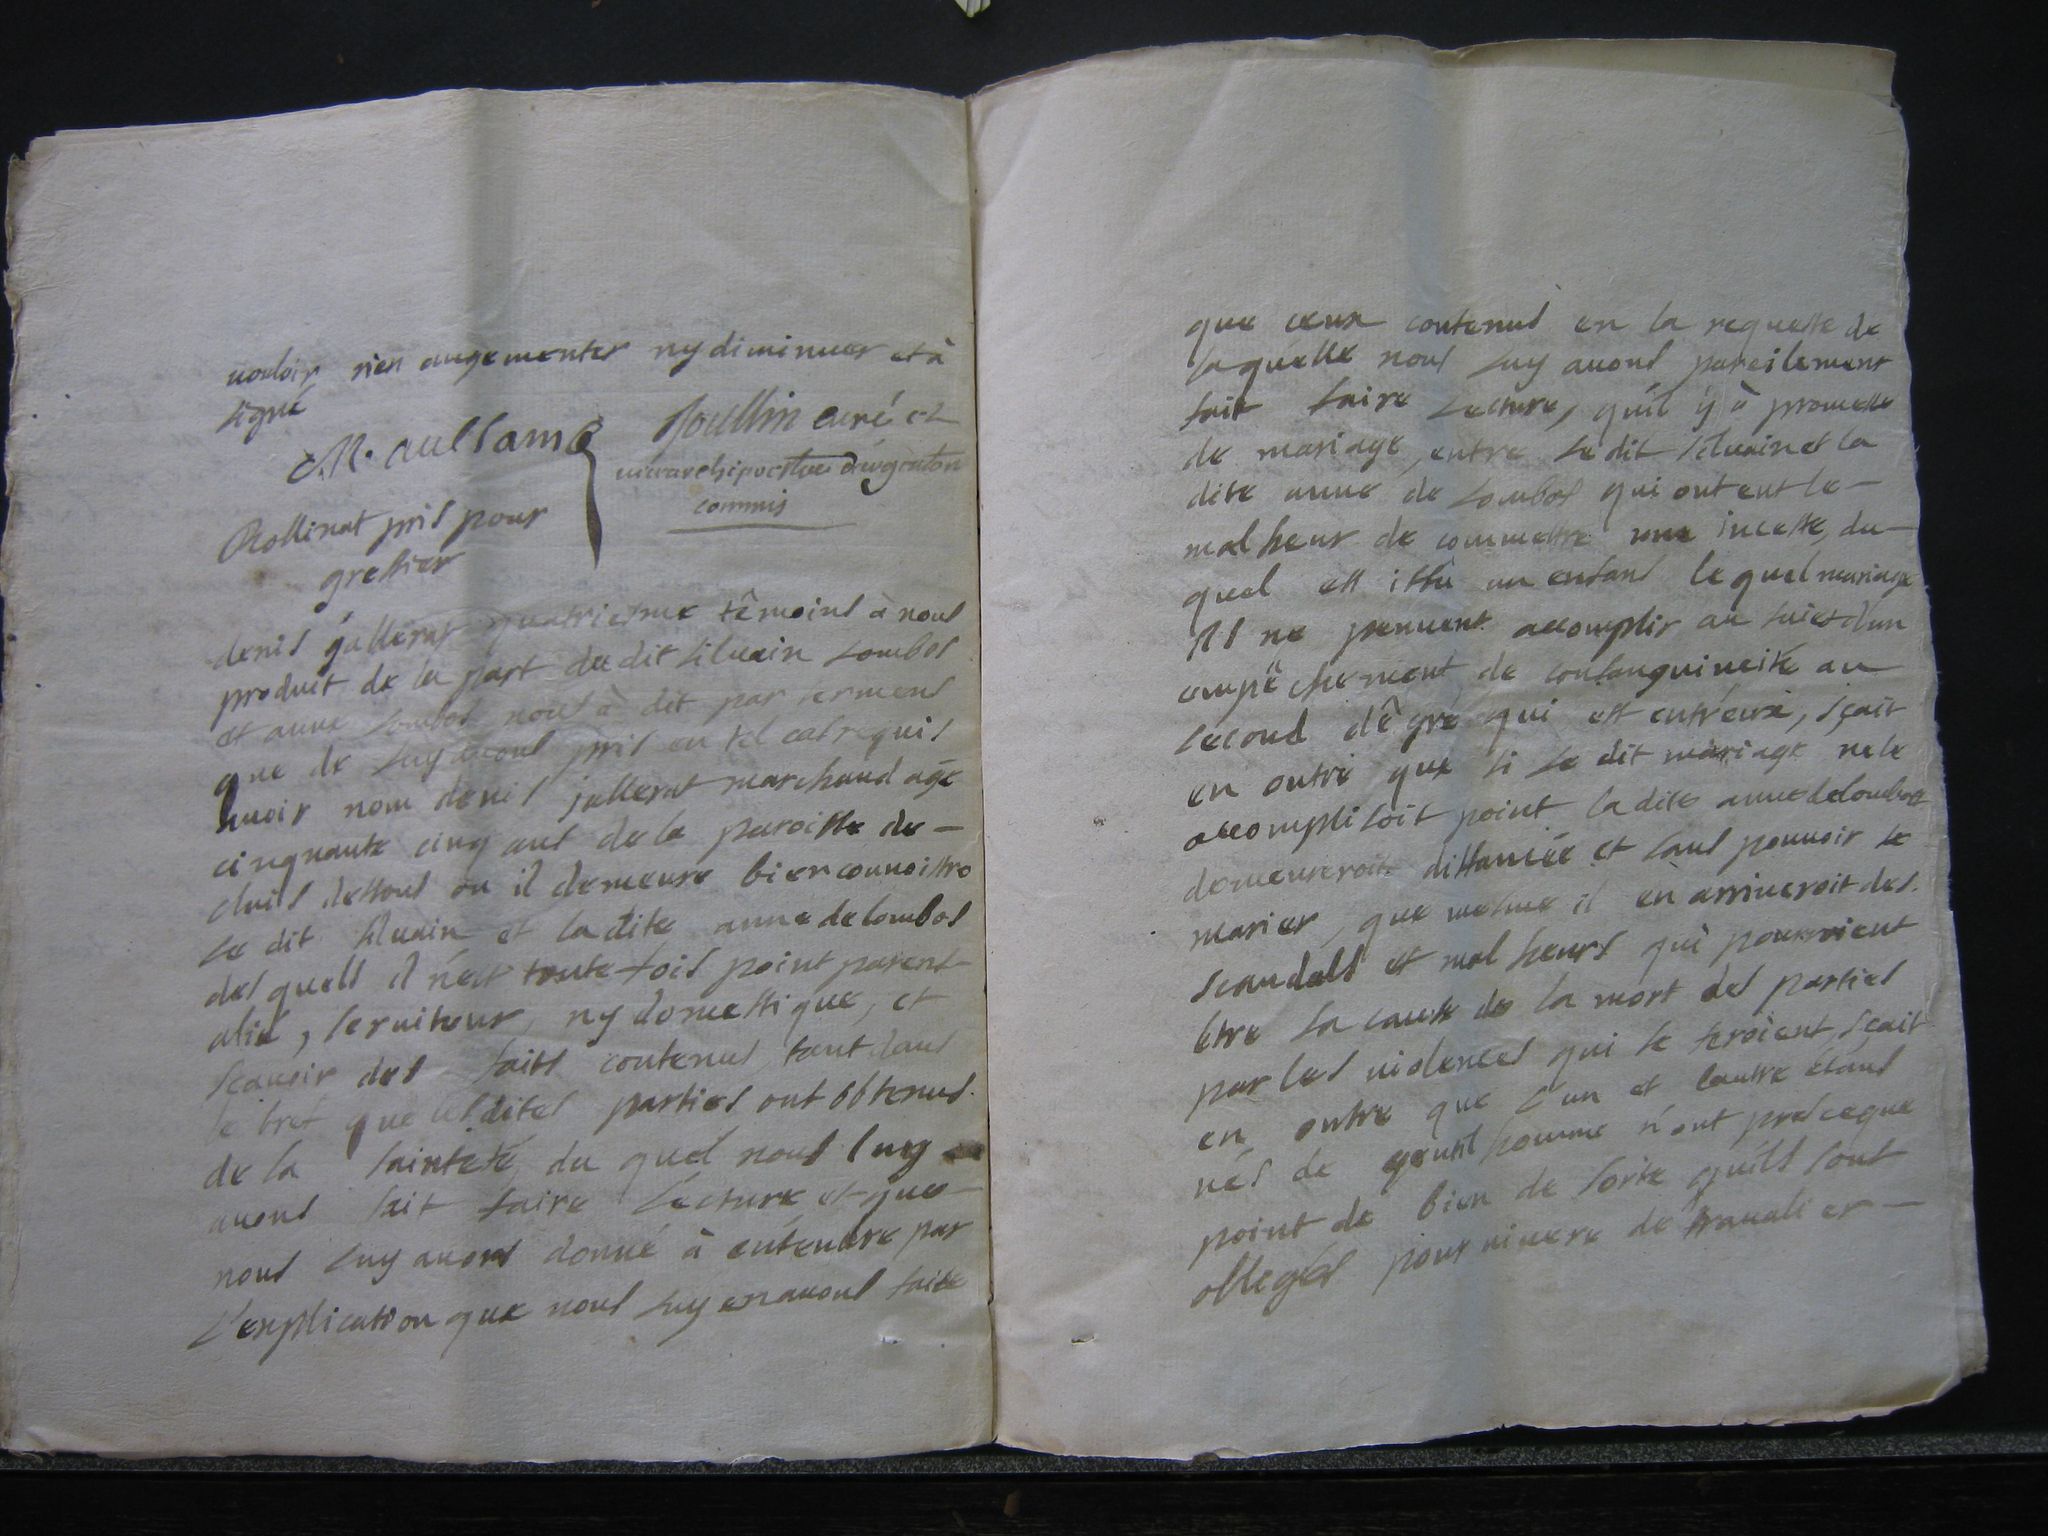 vouloir rien augementer ny diminuer et à
signé
M. aullame
Joullin curé et
vicarchiprestre d'argenton
commis
Rollinat pris pour
greffier
denis jallerat quatriesme témoins à nous
produit de la part du dit silvain Lombos
et anne Lombos nous à dit par serment
que de luy avons pris en tel cas requis
avoir nom denis jallerat marchand agé
cinquante cinq ans de la paroisse de
cluis dessous ou il demeure bien connoistre
le dit silvain et la dite anne de lombos
des quels il n'est toute fois point parent
alié, serviteur, ny domestique, et
scavoir des faits contenus tant dans
le bref que les dites parties ont obtenus
de la sainteté, du quel nous luy
avons fait faire lecture et que
nous luy avons donné à entendre par
l'explication que nous luy en avons faite
que ceux contenus en la requeste de
laquelle nous luy avons pareilement
fait faire lecture, qu'il y à promesse
de mariage, entre le dit silvain et la
dite anne de Lombos qui ont eut le
malheur de commettre une inceste, du
quel est issu un enfant le quel mariage
ils ne peuvent accomplir au suiet d'un
empêchement de consanguineité au
second dêgré qui est entréeux, sçait
en outre que si le dit mariage ne se
accomplisoit point la dite anne de lombos
demeureroit diffamée et sans pouvoir se
marier, que mesme il en arriveroit des
scandals et malheurs qui pourroient
être la cause de la mort des parties
par les violences qui se feroient, sçait
en outre que l'un et l'autre étans
nés de gentil homme n'ont presceque
point de bien de sorte qu'ils sont
obligés pour vivere de travalier